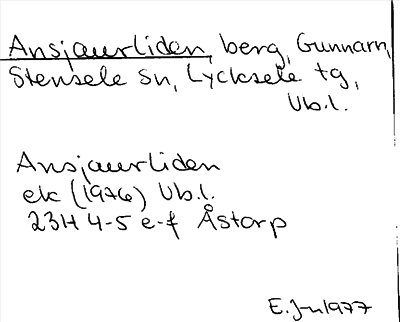 Ansjaurliden, berg, Gunnarn,
Stensele sn, Lycksele tg,
Vb.l.
Ansjaurliden
ek (1976) Vb.l.
23H 4-5 e-f Åstorp
E. Jn 1977